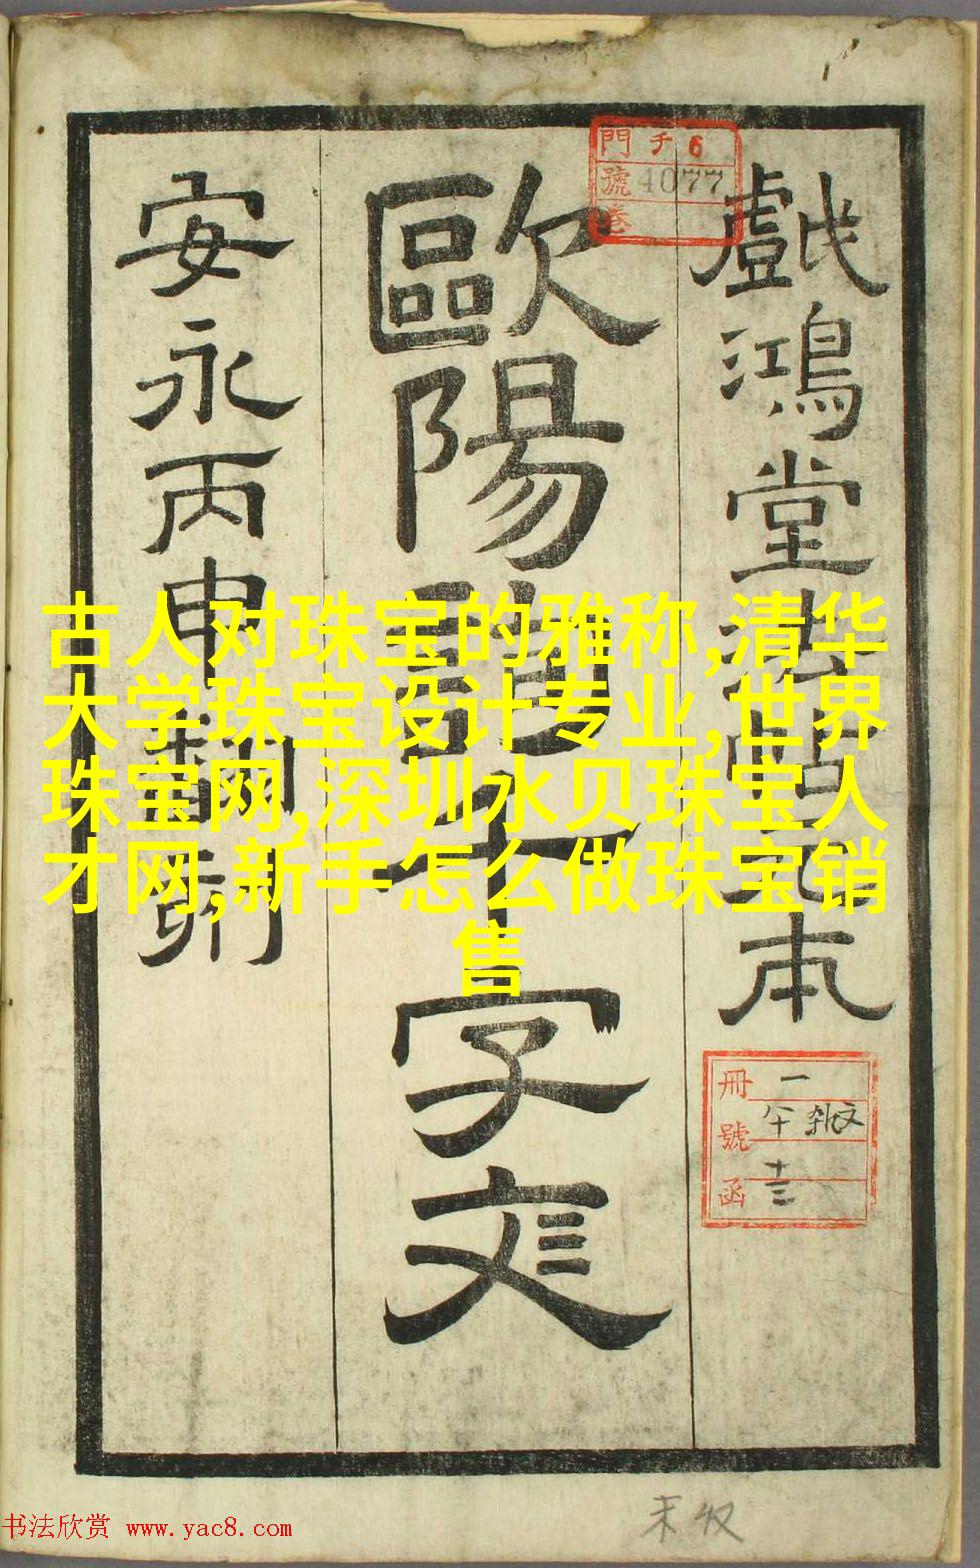 戲鴻堂法帖元本
歐陽千字文
安永丙申翻
門 チ 6
號 4077
卷
冊 一
號
函 十三
古人对珠宝的雅称,清华
大学珠宝设计专业,世界
珠宝网,深圳水贝珠宝人
才网,新手怎么做珠宝销
售
书法欣赏 www.yac8.com